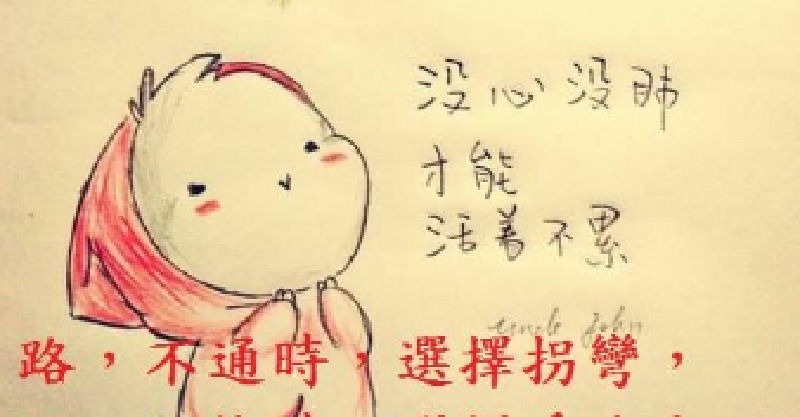 没心没肺
才能
活着不累
uncle John
路，不通時，選擇拐彎，